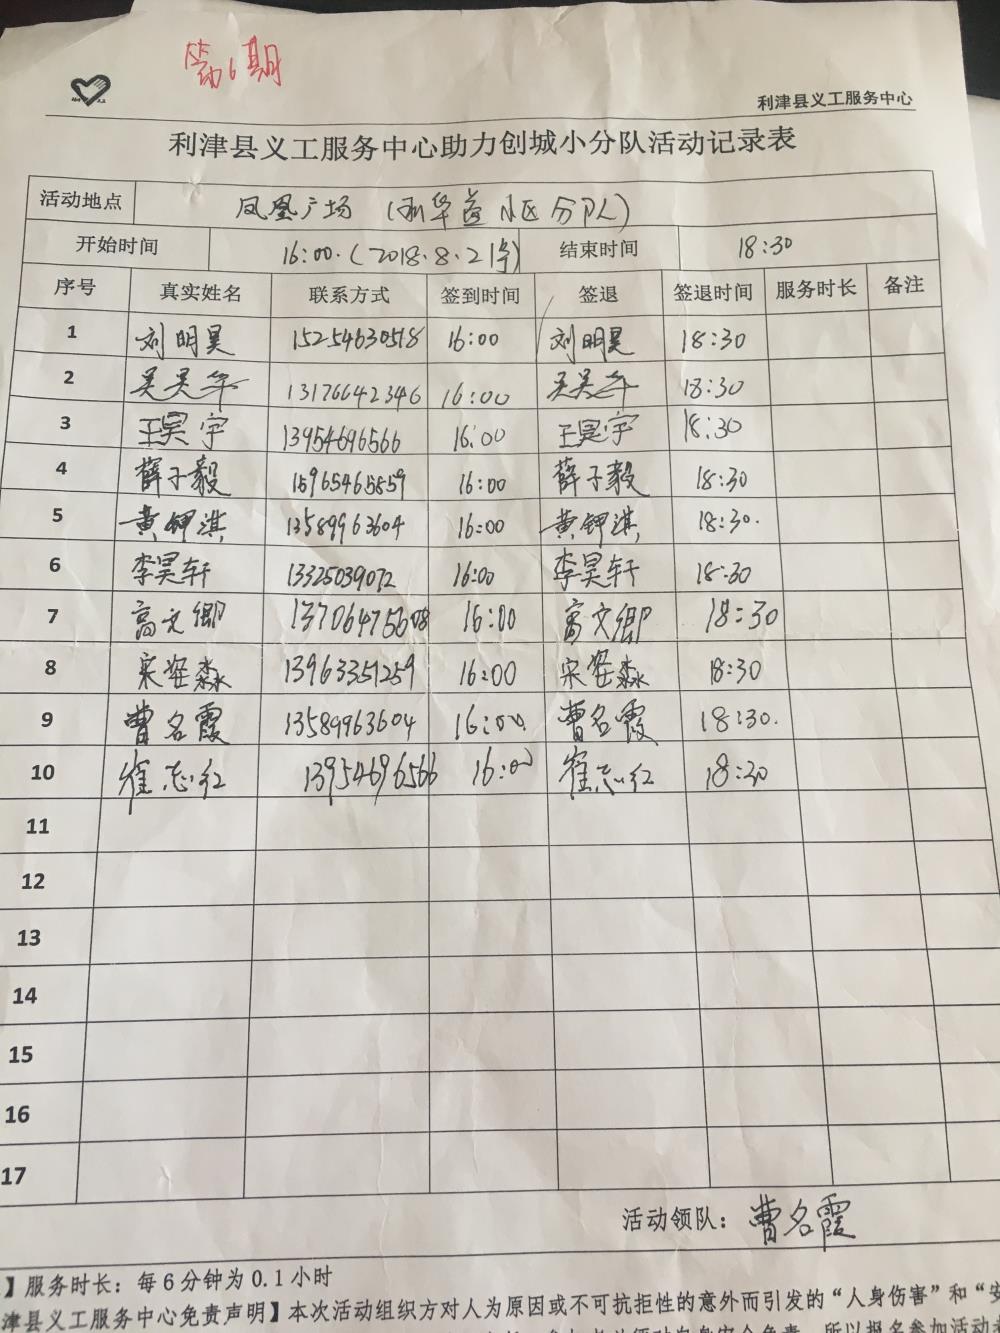 第6期
利津县义工服务中心
利津县义工服务中心助力创城小分队活动记录表
活动地点 凤凰广场 (利华益小区分队)
开始时间 16:00.(2018.8.21 结束时间 18:30
序号 真实姓名 联系方式 签到时间 签退 签退时间 服务时长 备注
1 刘明昊 15254630518 16:00 刘明昊 18:30
2 吴昊华 13176642346 16:00 吴昊华 18:30
3 王昊宇 13954696566 16:00 王昊宇 18:30
4 薛子毅 15965465859 16:00 薛子毅 18:30
5 黄钾淇 13589963604 16:00 黄钾淇 18:30.
6 李昊轩 13325039072 16:00 李昊轩 18:30
7 高文卿 13706475608 16:00 高文卿 18:30
8 宋姿淼 13963351259 16:00 宋姿淼 18:30
9 曹名霞 13589963604 16:00. 曹名霞 18:30.
10 崔志红 13954696566 16:00 崔志红 18:30
11
12
13
14
15
16
17
活动领队：曹名霞
】服务时长：每6分钟为0.1小时
津县义工服务中心免责声明】本次活动组织方对人为原因或不可抗拒性的意外而引发的“人身伤害”和“安